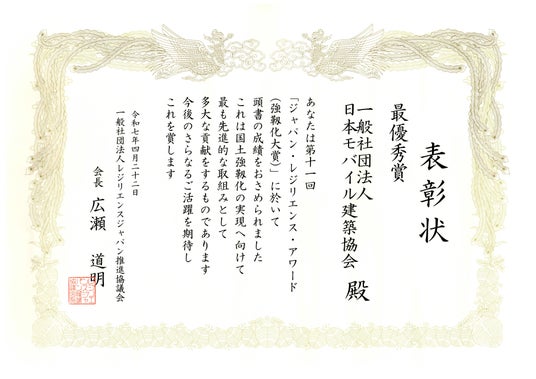 表彰状
最優秀賞
一般社団法人
日本モバイル建築協会 殿
あなたは第十一回
「ジャパン・レジリエンス・アワード
(強靱化大賞)」に於いて
頭書の成績をおさめられました
これは国土強靱化の実現へ向けて
最も先進的な取組みとして
多大な貢献をするものであります
今後のさらなるご活躍を期待し
これを賞します
令和七年四月二十二日
一般社団法人レジリエンスジャパン推進協議会
会長 広瀬 道明